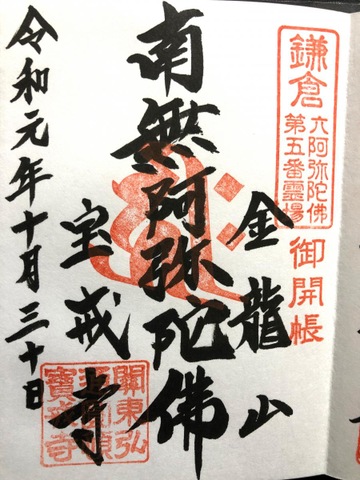 鎌倉
六阿弥陀佛
第五番霊場
御開帳
金龍山
南無阿弥陀佛
宝戒寺
令和元年十月三十日
關東弘
寶戒寺